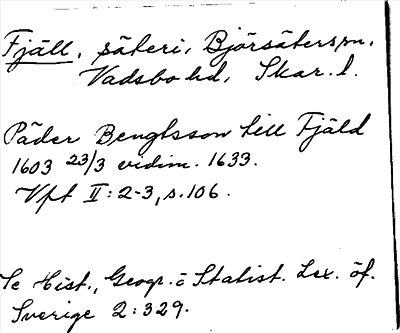 Fjäll, säteri, Björsäters sn.
Vadsbo hd, Skar. l.
Päder Bengtsson till Fjäld
1603 23/3 vidim. 1633.
Vpf II: 2-3, s. 106.
Se Hist., Geogr. o Statist. Lex. öf.
Sverige 2: 329.